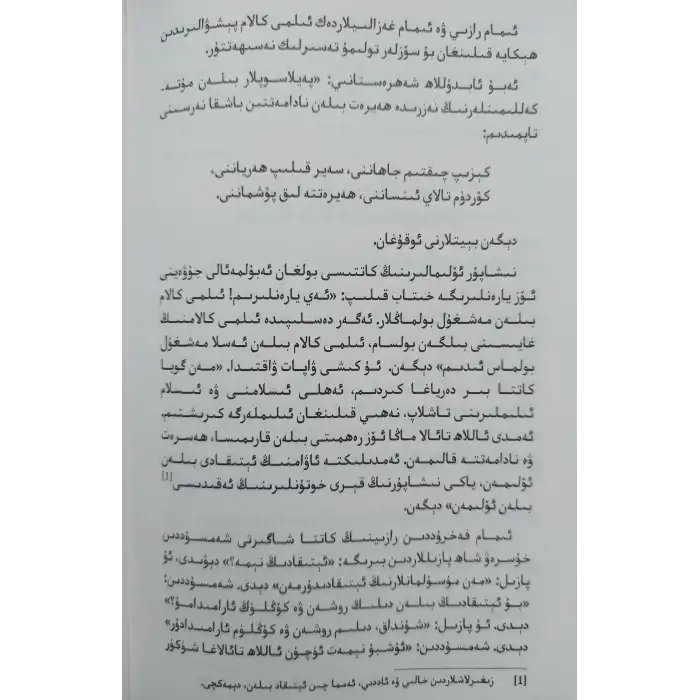 ئىمام رازىي ۋە ئىمام غەزالىيلاردەك ئىلمى كالام پېشۋالىرىدىن
ھېكايە قىلىنغان بۇ سۆزلەر تولىمۇ تەسىرلىك نەسىھەتتۇر.
ئەبۇ ئابدۇللاھ شەھرەستانىي: «پەيلاسوپلار بىلەن مۇتە-
كەللىمىنلەرنىڭ نەزرىدە ھەيرەت بىلەن نادامەتتىن باشقا نەرسىنى
تاپمىدىم:
كېزىپ چىقتىم جاھاننى، سەير قىلىپ ھەرياننى،
كۆردۈم تالاي ئىنساننى، ھەيرەتتە لىق پۇشماننى.
دېگەن بېيىتلارنى ئوقۇغان.
نىشاپۇر ئۆلىمالىرىنىڭ كاتتىسى بولغان ئەبۇلمەئالى جۇۋەينى
ئۆز يارەنلىرىگە خىتاب قىلىپ: «ئەي يارەنلىرىم! ئىلمى كالام
بىلەن مەشغۇل بولماڭلار. ئەگەر دەسلىپىدە ئىلمى كالامنىڭ
غايىسىنى بىلگەن بولسام، ئىلمى كالام بىلەن ئەسلا مەشغۇل
بولماس ئىدىم» دېگەن. ئۇ كىشى ۋاپات ۋاقتىدا. «مەن گويا
كاتتا بىر دەرياغا كىردىم، ئەھلى ئىسلامنى ۋە ئىسلام
ئىلىملىرىنى تاشلاپ، نەھىي قىلىنغان ئىلىملەرگە كىرىشتىم.
ئەمدى ئاللاھ تائالا ماڭا ئۆز رەھمىتى بىلەن قارىمىسا، ھەسرەت
ۋە نادامەتتە قالىمەن. ئەمدىلىكتە ئاۋامنىڭ ئېتىقادى بىلەن
ئۆلىمەن، ياكى نىشاپۇرنىڭ قېرى خوتۇنلىرىنىڭ ئەقىدىسى[1]
بىلەن ئۆلىمەن» دېگەن.
ئىمام فەخرۇددىن رازىينىڭ كاتتا شاگىرتى شەمسۇددىن
خۇسرەۋ شاھ پازىللاردىن بىرىگە: «ئېتىقادىڭ نېمە؟» دېۋىدى، ئۇ
پازىل: «مەن مۇسۇلمانلارنىڭ ئېتىقادىدۇرمەن» دېدى. شەمسۇددىن:
«بۇ ئېتىقادىڭ بىلەن دىلىڭ روشەن ۋە كۆڭلۈڭ ئارامىدامۇ؟»
دېدى. ئۇ پازىل: «شۇنداق، دىلىم روشەن ۋە كۆڭلۈم ئارامىدادۇر»
دېدى. شەمسۇددىن: «ئۇشبۇ نېمەت ئۈچۈن ئاللاھ تائالاغا شۈكۈر
[1] زىغىرلاشلاردىن خالىي ۋە ئاددىي، ئەمما چىن ئېتىقاد بىلەن، دېمەكچى.